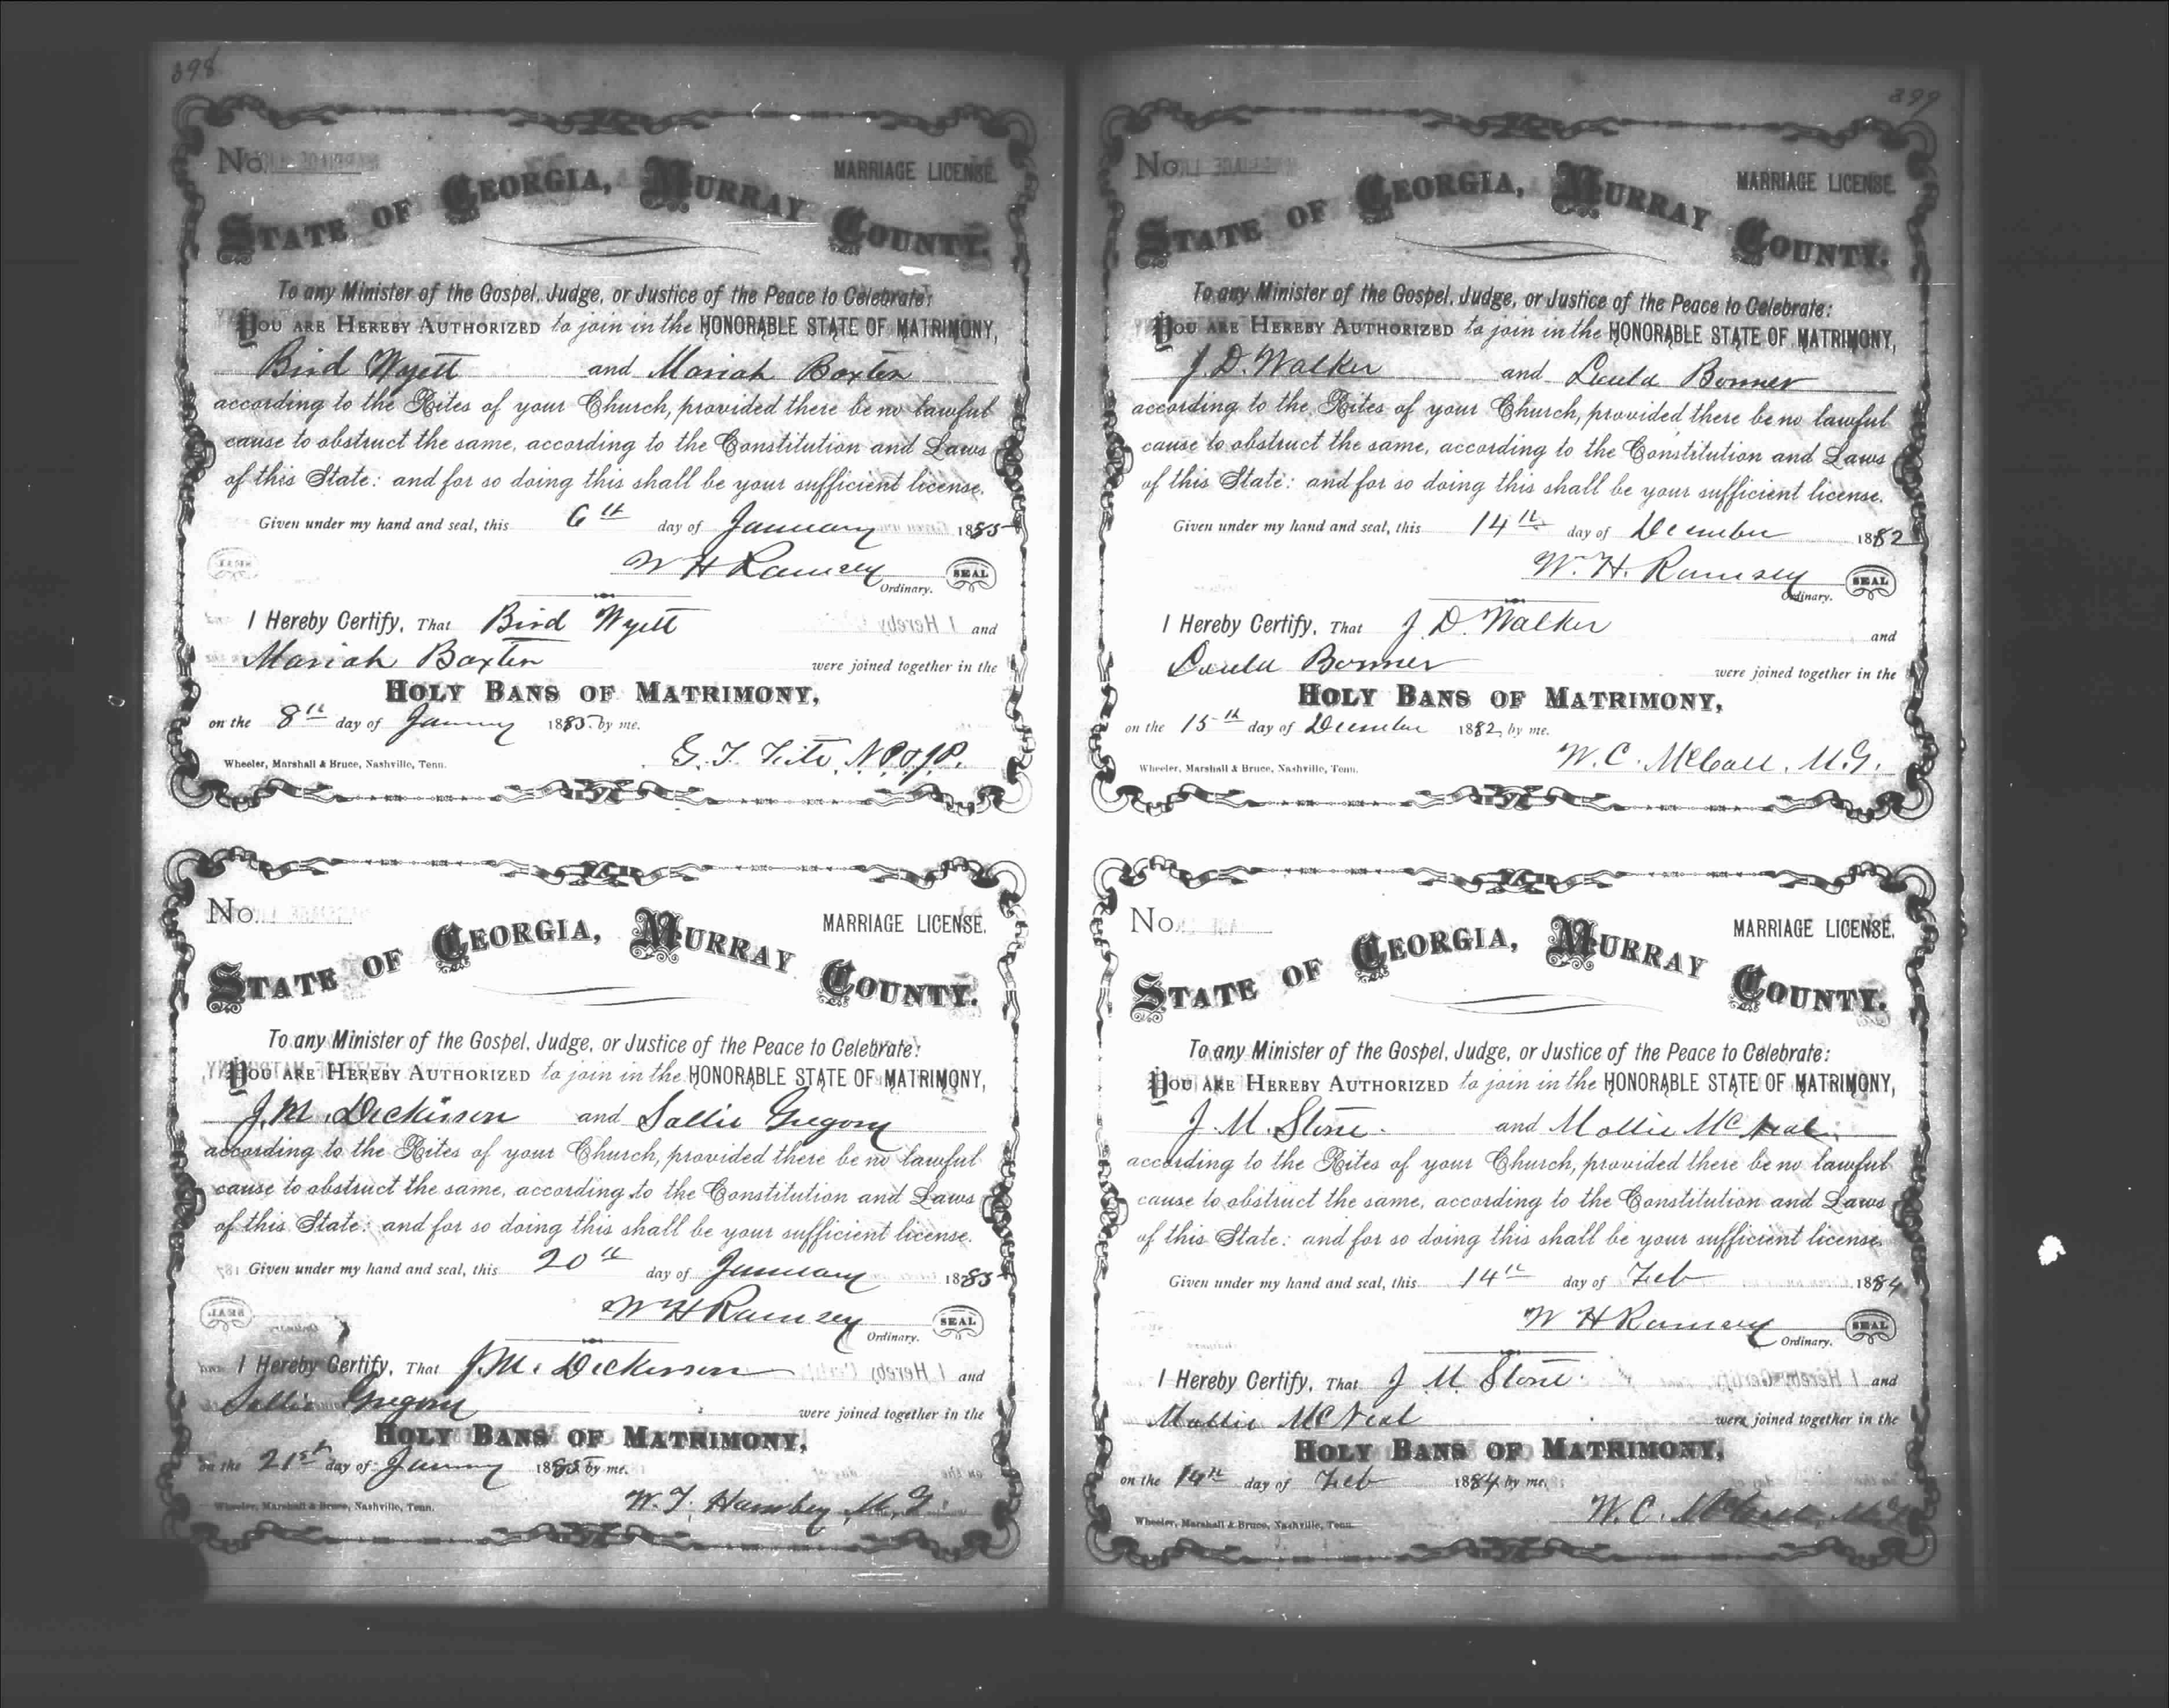 398
No.
MARRIAGE LICENSE.
STATE OF GEORGIA, MURRAY COUNTY.
To any Minister of the Gospel, Judge, or Justice of the Peace to Celebrate:
YOU ARE HEREBY AUTHORIZED to join in the HONORABLE STATE OF MATRIMONY,
Bird Wyett and Mariah Baxter
according to the Rites of your Church, provided there be no lawful
cause to obstruct the same, according to the Constitution and Laws
of this State: and for so doing this shall be your sufficient license.
Given under my hand and seal, this 6th day of January 1885
W H Ramsey
Ordinary. SEAL
I Hereby Certify, That Bird Wyett and
Mariah Baxter were joined together in the
HOLY BANS OF MATRIMONY,
on the 8th day of January 1885 by me.
G. T. Fite, N.P.&J.P.
Wheeler, Marshall & Bruce, Nashville, Tenn.
No.
MARRIAGE LICENSE.
STATE OF GEORGIA, MURRAY COUNTY.
To any Minister of the Gospel, Judge, or Justice of the Peace to Celebrate:
YOU ARE HEREBY AUTHORIZED to join in the HONORABLE STATE OF MATRIMONY,
J. M. Dickinson and Sallie Gregory
according to the Rites of your Church, provided there be no lawful
cause to obstruct the same, according to the Constitution and Laws
of this State: and for so doing this shall be your sufficient license.
Given under my hand and seal, this 20th day of January 1885
W H Ramsey
Ordinary. SEAL
I Hereby Certify, That J. M. Dickerson and
Sallie Gregory were joined together in the
HOLY BANS OF MATRIMONY,
on the 21st day of January 1885 by me.
W. T. Hamby M. G.
Wheeler, Marshall & Bruce, Nashville, Tenn.
399
No.
MARRIAGE LICENSE.
STATE OF GEORGIA, MURRAY COUNTY.
To any Minister of the Gospel, Judge, or Justice of the Peace to Celebrate:
YOU ARE HEREBY AUTHORIZED to join in the HONORABLE STATE OF MATRIMONY,
J. D. Walker and Lula Bonner
according to the Rites of your Church, provided there be no lawful
cause to obstruct the same, according to the Constitution and Laws
of this State: and for so doing this shall be your sufficient license.
Given under my hand and seal, this 14th day of December 1882
W. H. Ramsey
Ordinary. SEAL
I Hereby Certify, That J. D. Walker and
Bonner were joined together in the
HOLY BANS OF MATRIMONY,
on the 15th day of December 1882, by me.
W. C. McCall. M.G.
Wheeler, Marshall & Bruce, Nashville, Tenn.
No.
MARRIAGE LICENSE.
STATE OF GEORGIA, MURRAY COUNTY.
To any Minister of the Gospel, Judge, or Justice of the Peace to Celebrate:
YOU ARE HEREBY AUTHORIZED to join in the HONORABLE STATE OF MATRIMONY,
J. M. Stone. and Mollie McNeal
according to the Rites of your Church, provided there be no lawful
cause to obstruct the same, according to the Constitution and Laws
of this State: and for so doing this shall be your sufficient license.
Given under my hand and seal, this 14th day of Feb 1884
W H Ramsey
Ordinary. SEAL
I Hereby Certify, That J M Stone and
Mollie McNeal were joined together in the
HOLY BANS OF MATRIMONY,
on the 14th day of Feb 1884 by me,
W. C. McCall, M.G.
Wheeler, Marshall & Bruce, Nashville, Tenn.